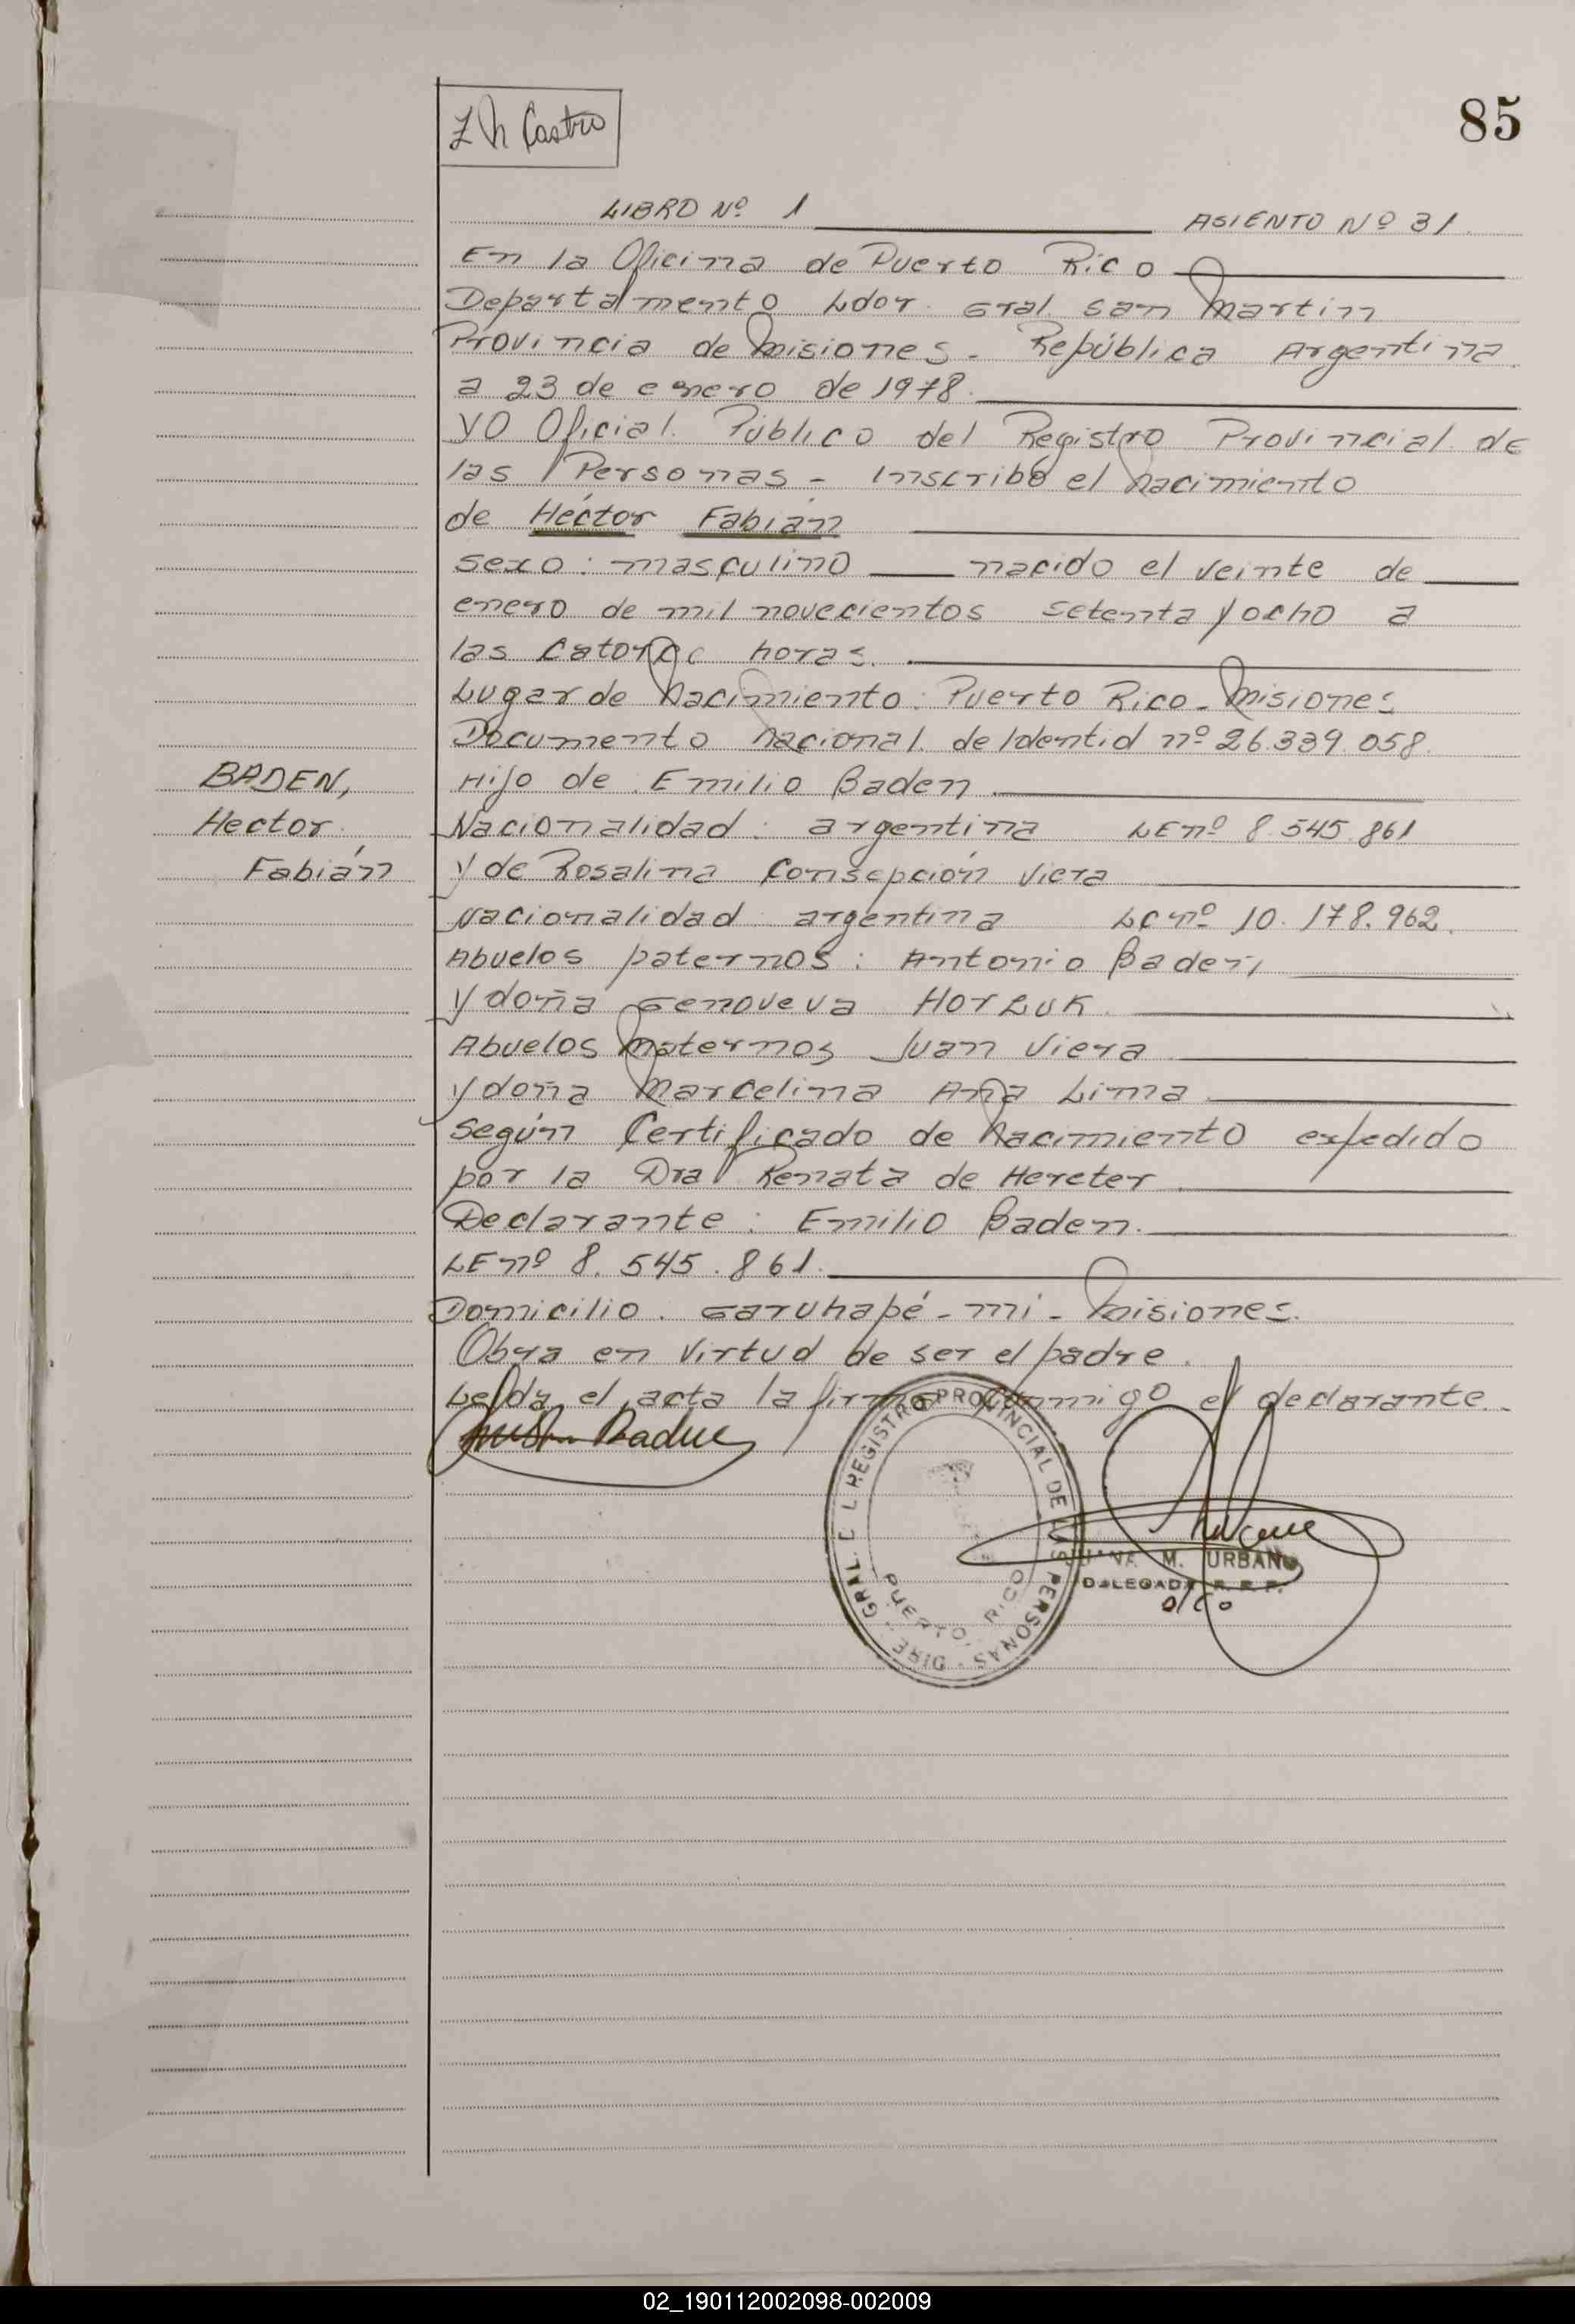 Castro
85
LIBRO Nº 1 ASIENTO Nº 31.
En la Oficina de Puerto Rico
Departamento Ldor. Gral. San Martin
Provincia de Misiones - República Argentina.
a 23 de enero de 1978.
YO Oficial Público del Registro Provincial de
las Personas - Inscribo el Nacimiento
de Héctor Fabián
sexo: masculino nacido el veinte de
enero de mil novecientos setenta y ocho a
las Catorce horas.
Lugar de Nacimiento: Puerto Rico - Misiones
Documento Nacional de Identid nº 26.339.058.
Hijo de Emilio Baden
BADEN,
Hector
Fabián
Nacionalidad: argentina LE nº 8.545.861
y de Rosalina Consepción Viera
Nacionalidad: argentina LC nº 10.178.962.
Abuelos paternos: Antonio Baden,
y doña Genoveva HorLuk.
Abuelos Maternos Juan Viera
y doña Marcelina Ana Lima
según Certificado de Nacimiento expedido
por la Dra Renata de Hereter
Declarante: Emilio Baden.
LE nº 8.545.861.
Domicilio. Garuhapé - mí - Misiones.
Obra en virtud de ser el padre.
Leída el acta la firma Conmigo el declarante.
DIRE. GRAL. REGISTRO PROVINCIAL DE LAS PERSONAS
PUERTO RICO
M. URBANO
DELEGADA R. P. P.